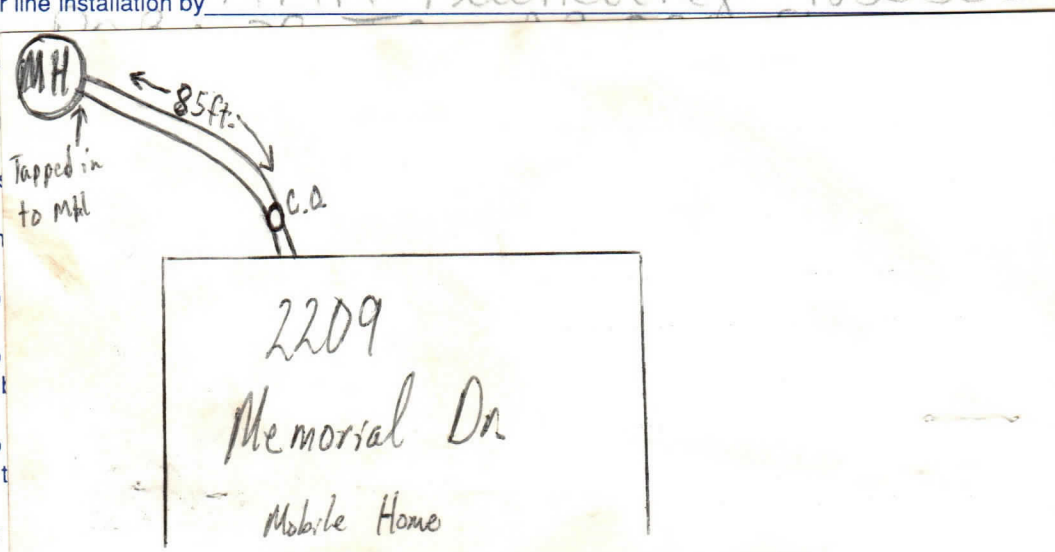 r line installation by
MH
← 85ft.
Tapped in
to MH
C.O.
2209
Memorial Dr.
Mobile Home